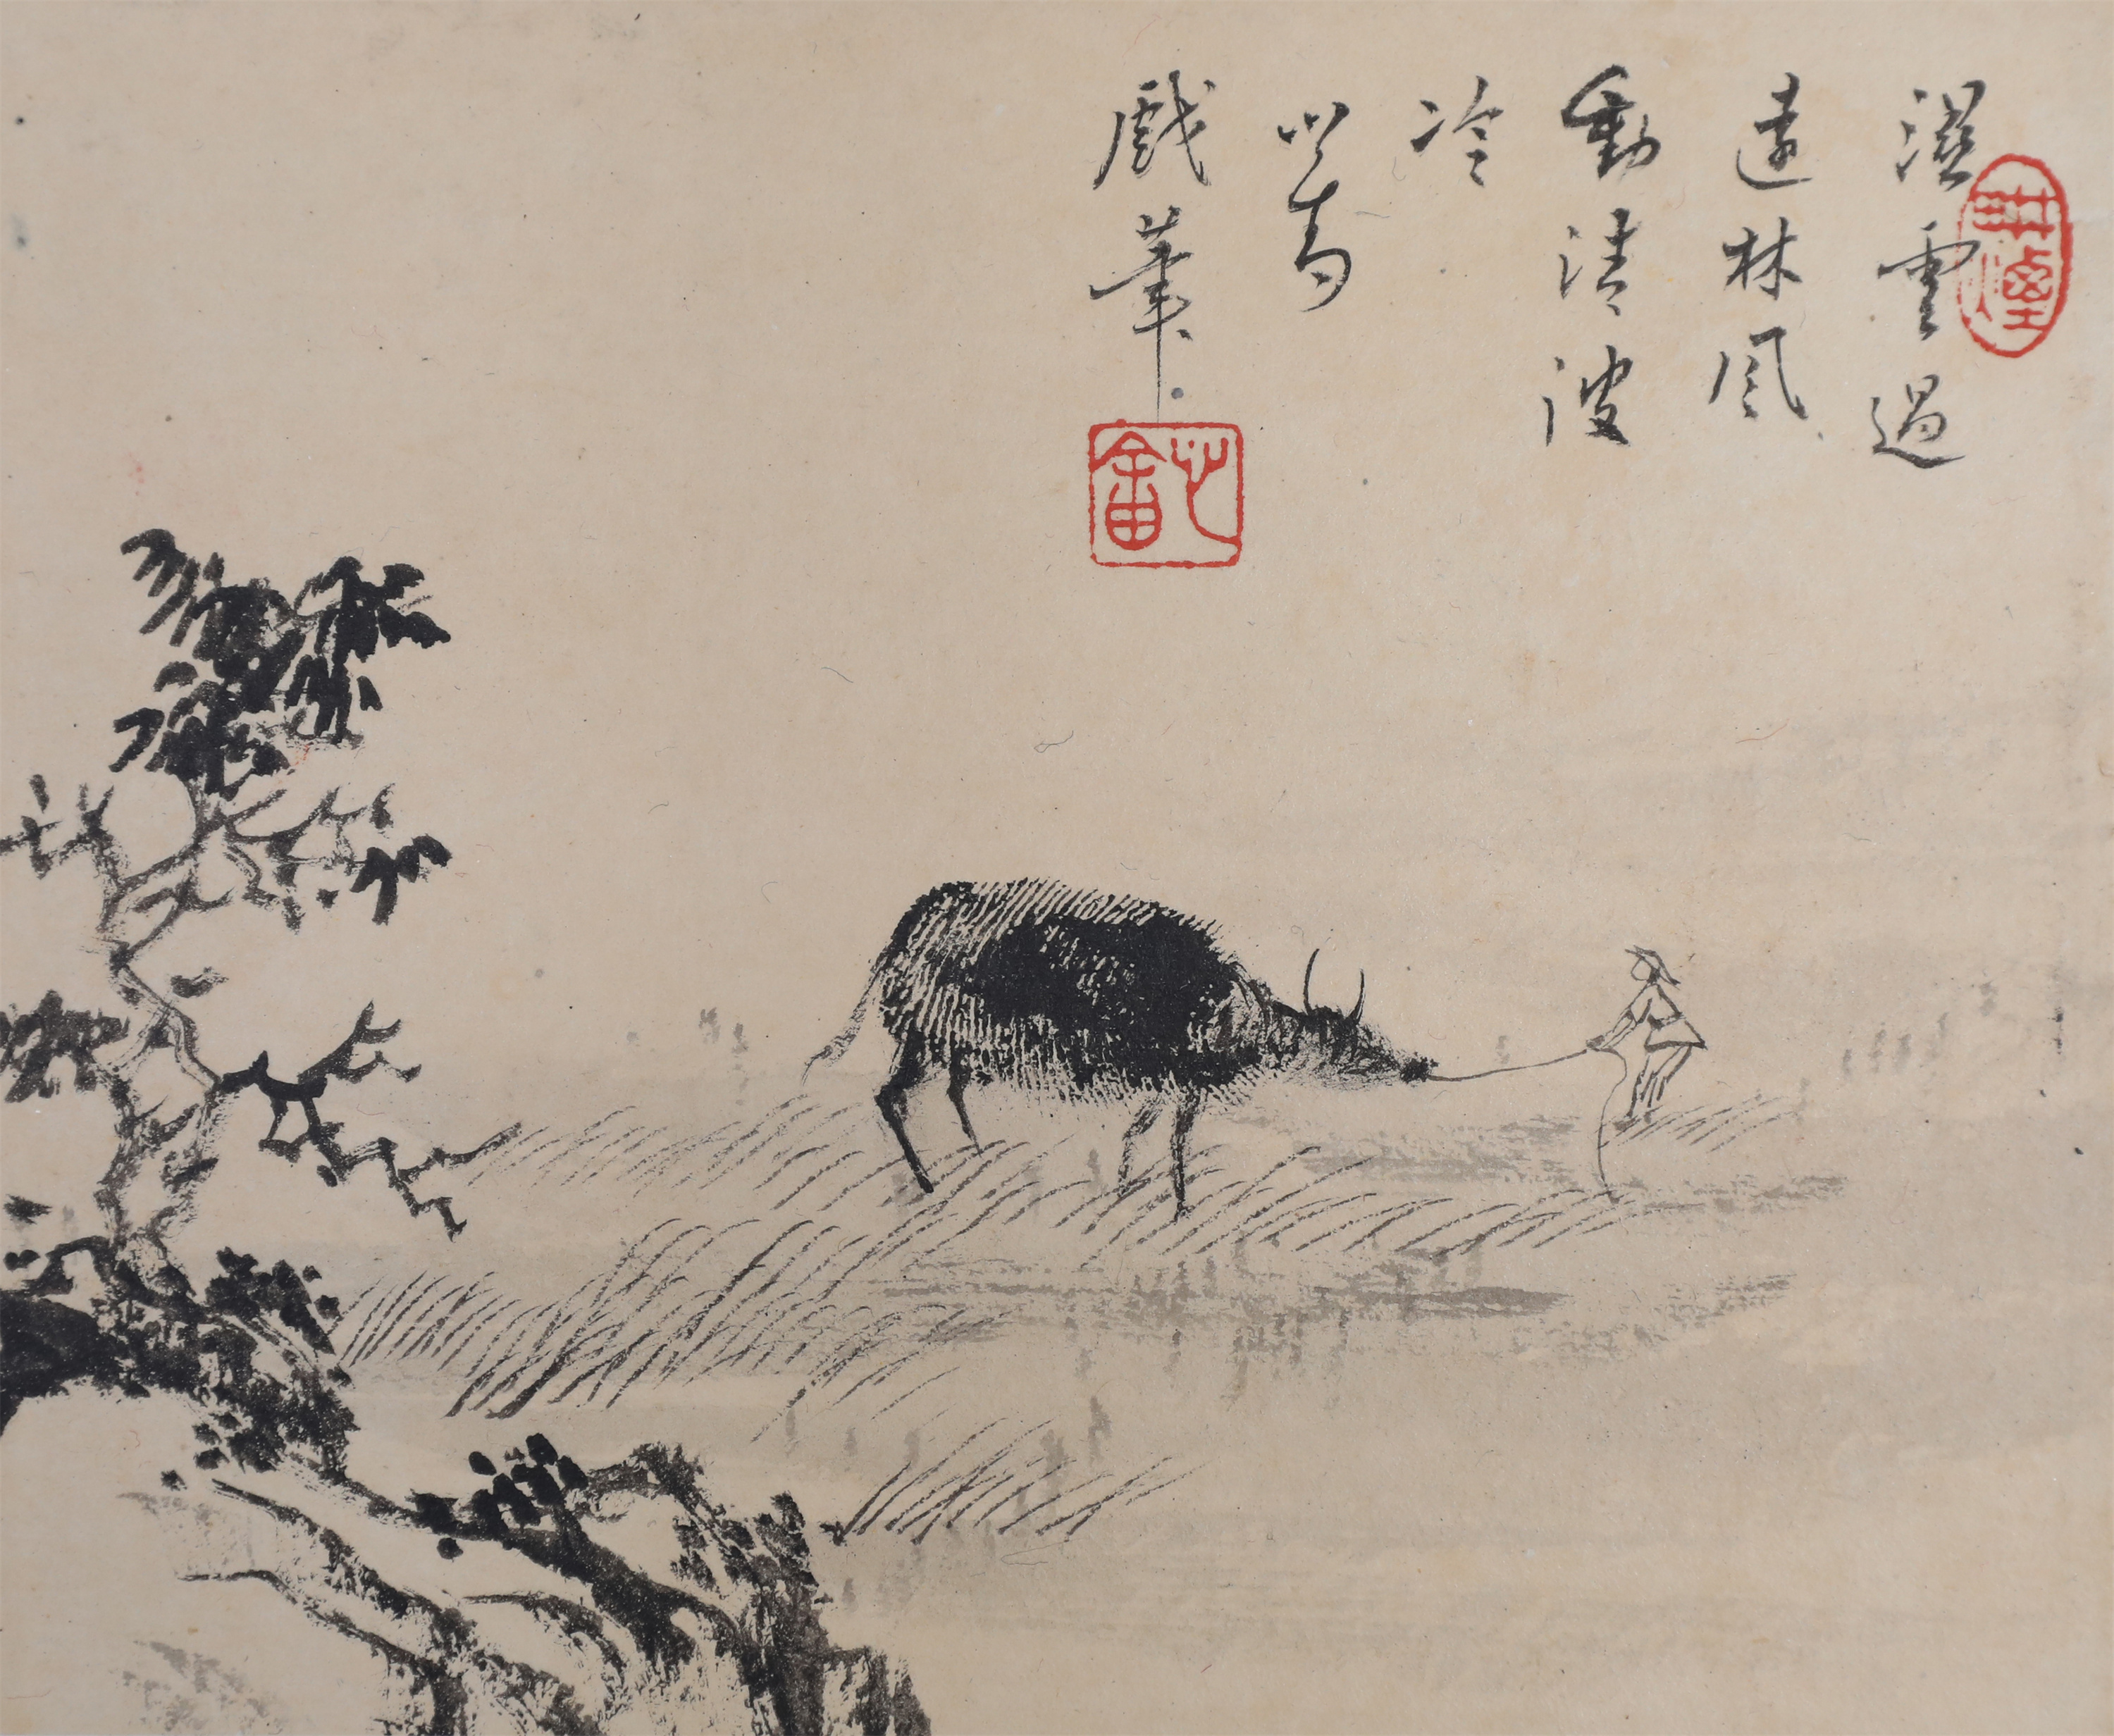 濕雲過
遠林風
動清波
冷
心畬
戲筆
心畬